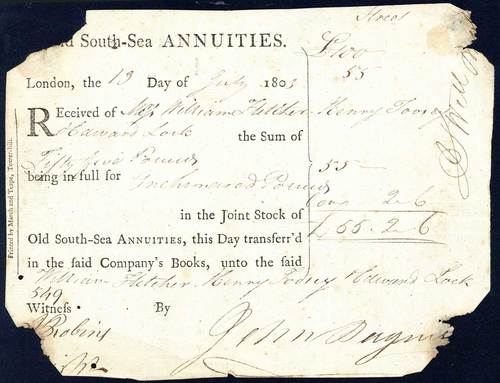 Street
Old South-Sea ANNUITIES. £100
55
London, the 13 Day of July 1803
Received of Messrs William Fletcher Henry Toosey
& Edward Lock the Sum of
Fifty five Pounds 55 —
being in full for One hundred Pounds
Cons 2 - 6
in the Joint Stock of £ 55 . 2 - 6
Old South-Sea ANNUITIES, this Day transferr'd
in the said Company's Books, unto the said
William Fletcher Henry Toosey Edward Lock
549
Witness By
Robins John
Printed by March and Teape, Tower-hill.